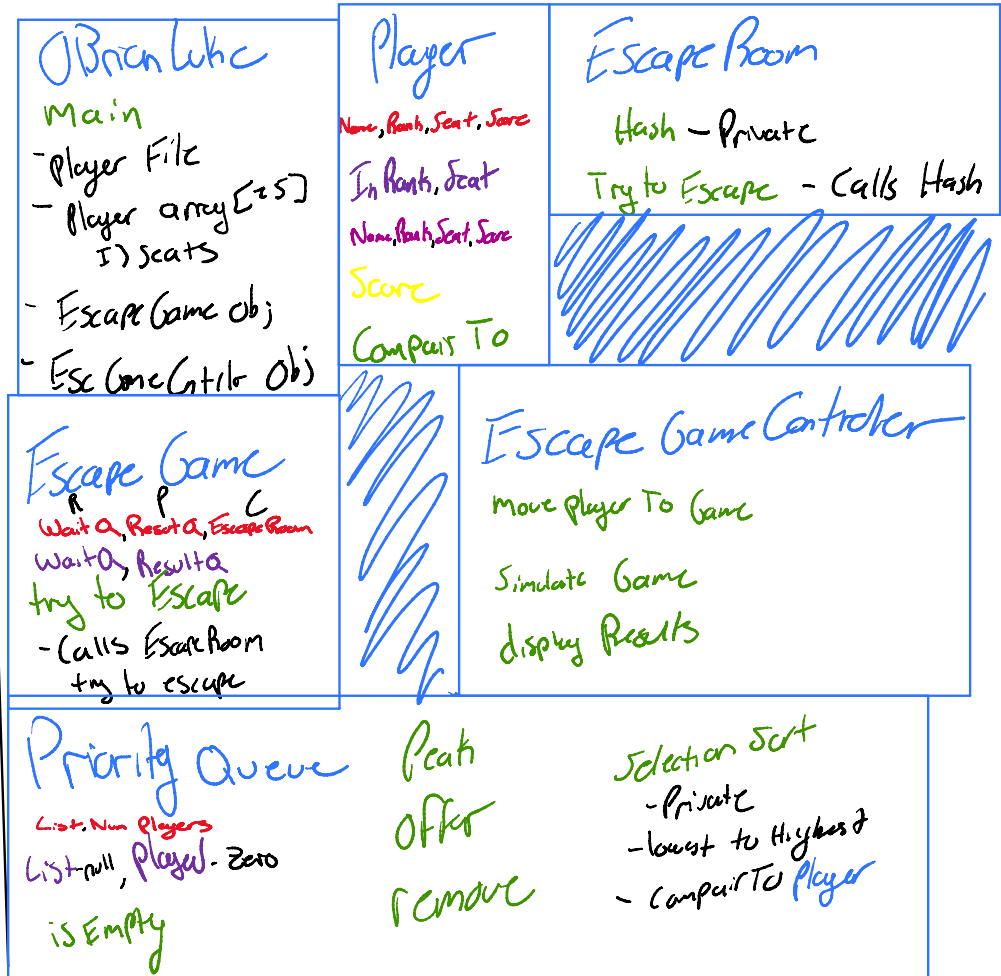 OBrianLuke
Main
- Player File
- Player array[25]
I) Seats
- EscapeGame Obj
- EscGameCntrlr Obj
Player
Name, Rank, Seat, Score
In Rank, Seat
Name, Rank, Seat, Score
Score
Compair To
EscapeRoom
Hash - Private
Try to Escape - Calls Hash
Escape Game
R P C
WaitQ, ResutQ, EscapeRoom
WaitQ, ResultQ
try to Escape
- Calls EscapeRoom
try to escape
Escape Game Controler
move player To Game
Simulate Game
display Results
Priority Queue
List, Num Players
List-null, Player-Zero
isEmpty
Peak
Offer
remove
Selection Sort
- Private
- lowest to Highest
- CompairTo Player